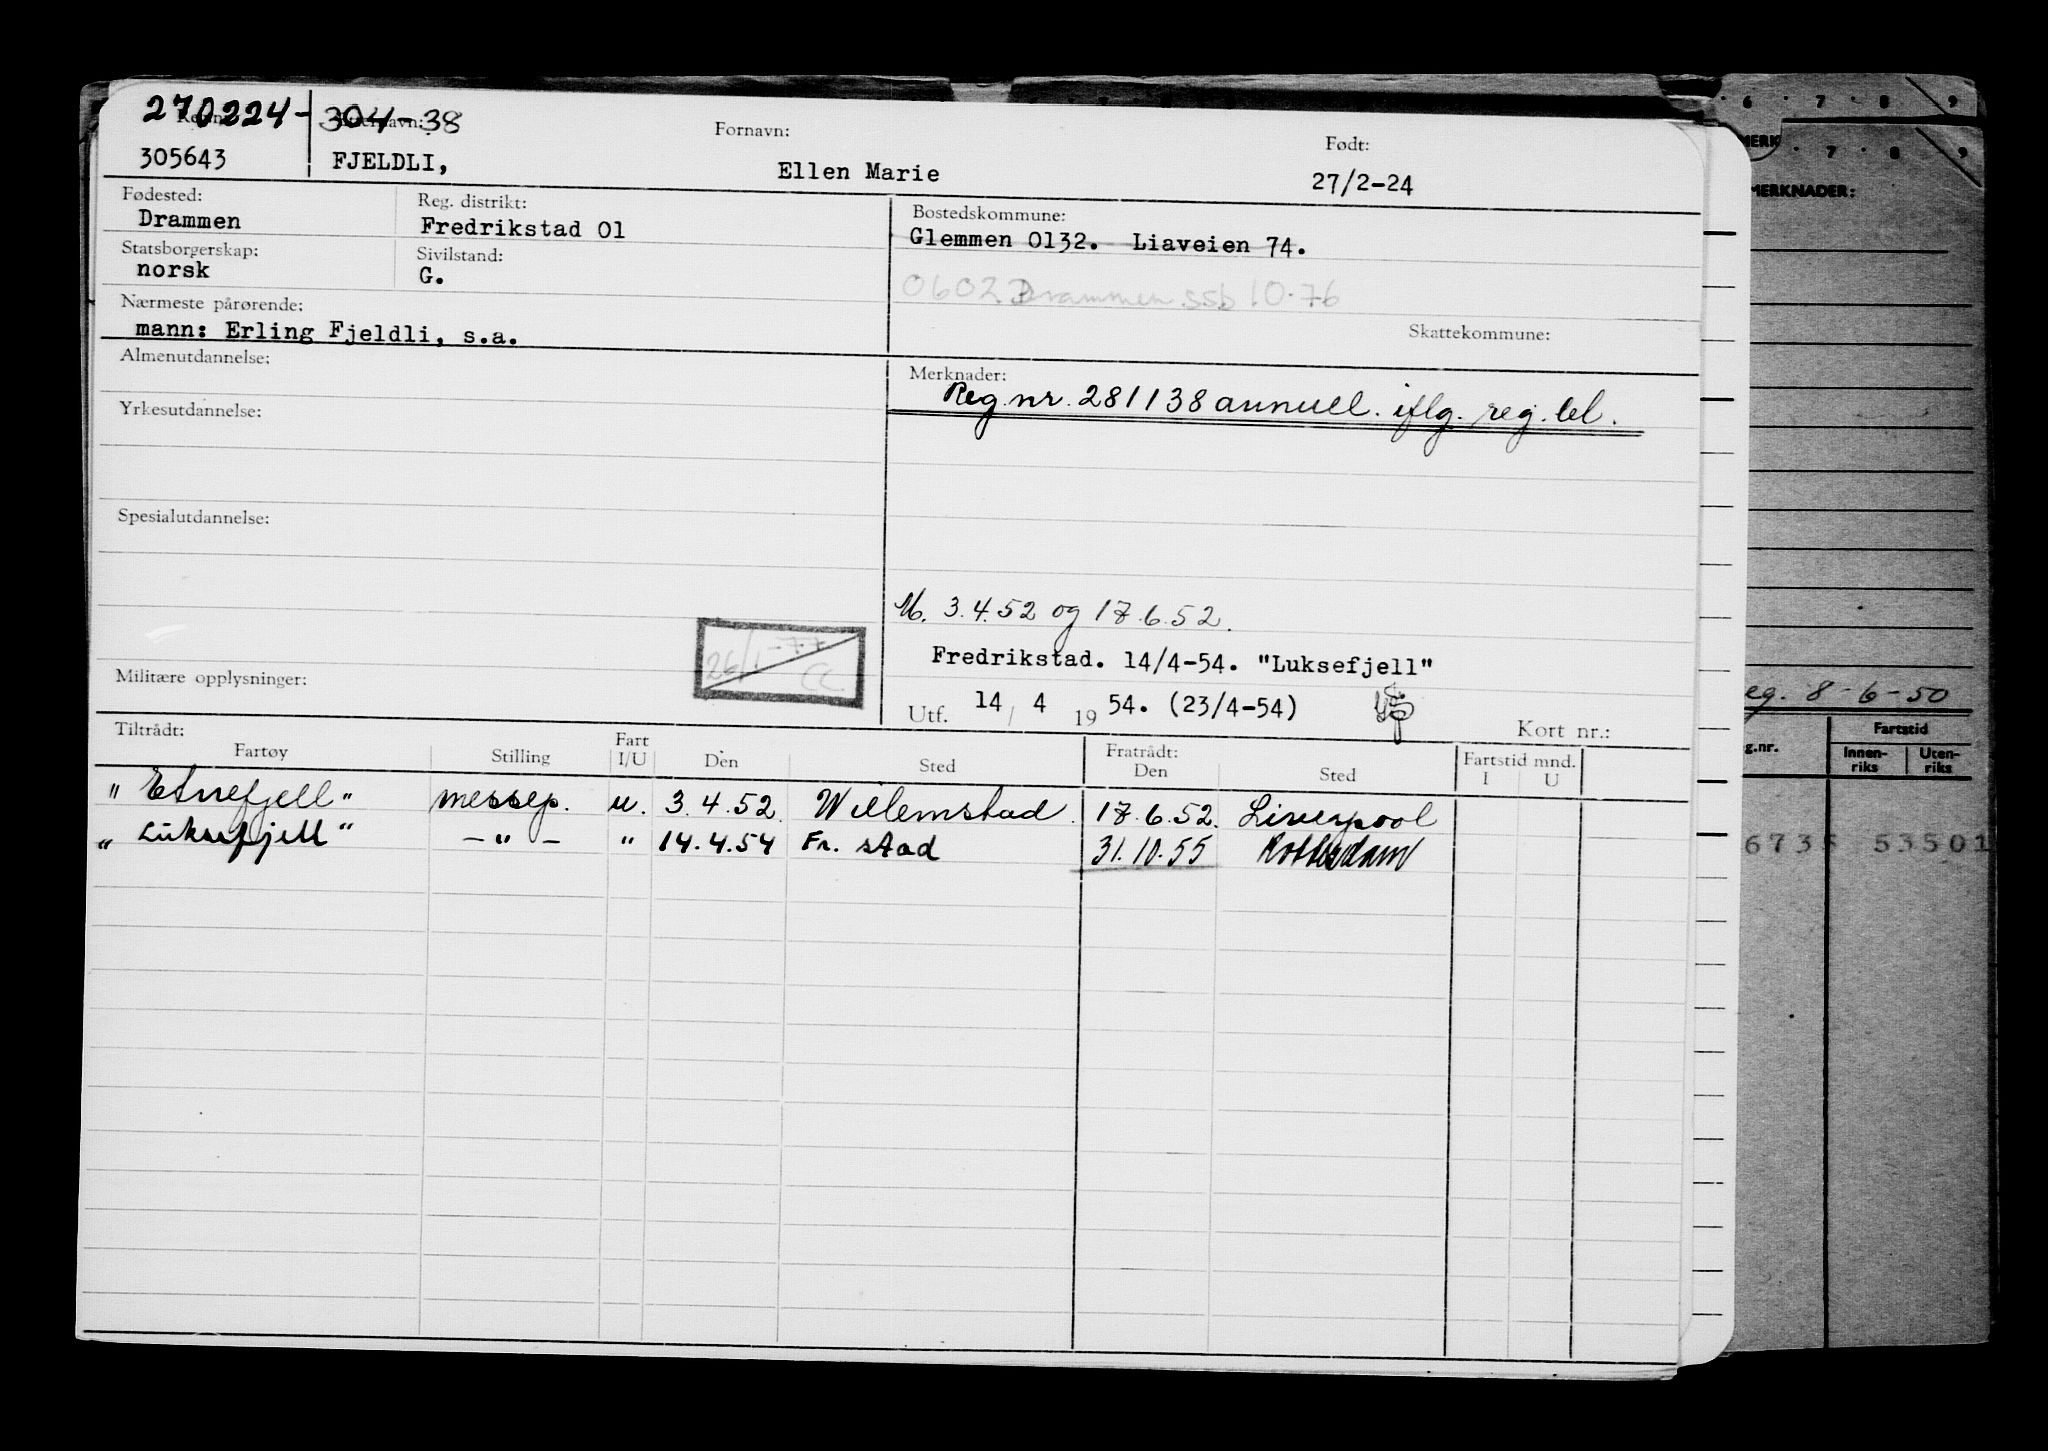 270224-304-38
Fornavn:
Født:
305643 FJELDLI, Ellen Marie 27/2-24
Fødested: Reg. distrikt: Bostedskommune:
Drammen Fredrikstad 01 Glemmen 0132. Liaveien 74.
Statsborgerskap: Sivilstand:
norsk G.
0602 Drammen ssb 10-76
Nærmeste pårørende:
mann: Erling Fjeldli, s.a.
Skattekommune:
Almenutdannelse:
Merknader:
Reg.nr. 281138 annuel. iflg. reg.
Yrkesutdannelse:
Spesialutdannelse:
M. 3.4.52 og 17.6.52.
26/1-77
CC
Fredrikstad. 14/4-54. "Luksefjell"
Militære opplysninger:
Utf. 14 / 4 19 54. (23/4-54)
Kort nr.:
Tiltrådt: Fratrådt:
Fartøy Stilling Fart I/U Den Sted Den Sted Fartstid mnd. I U
"Etnefjell" messep. u. 3.4.52 Willemstad. 17.6.52. Liverpool
"Luksefjell" -"- " 14.4.54 Fr.stad 31.10.55 Rotterdam
6 7 8 9
MERK
7 8 9
MERKNADER:
eg. 8-6-50
g.nr. Fartstid
Innen-riks Uten-riks
6735 53501